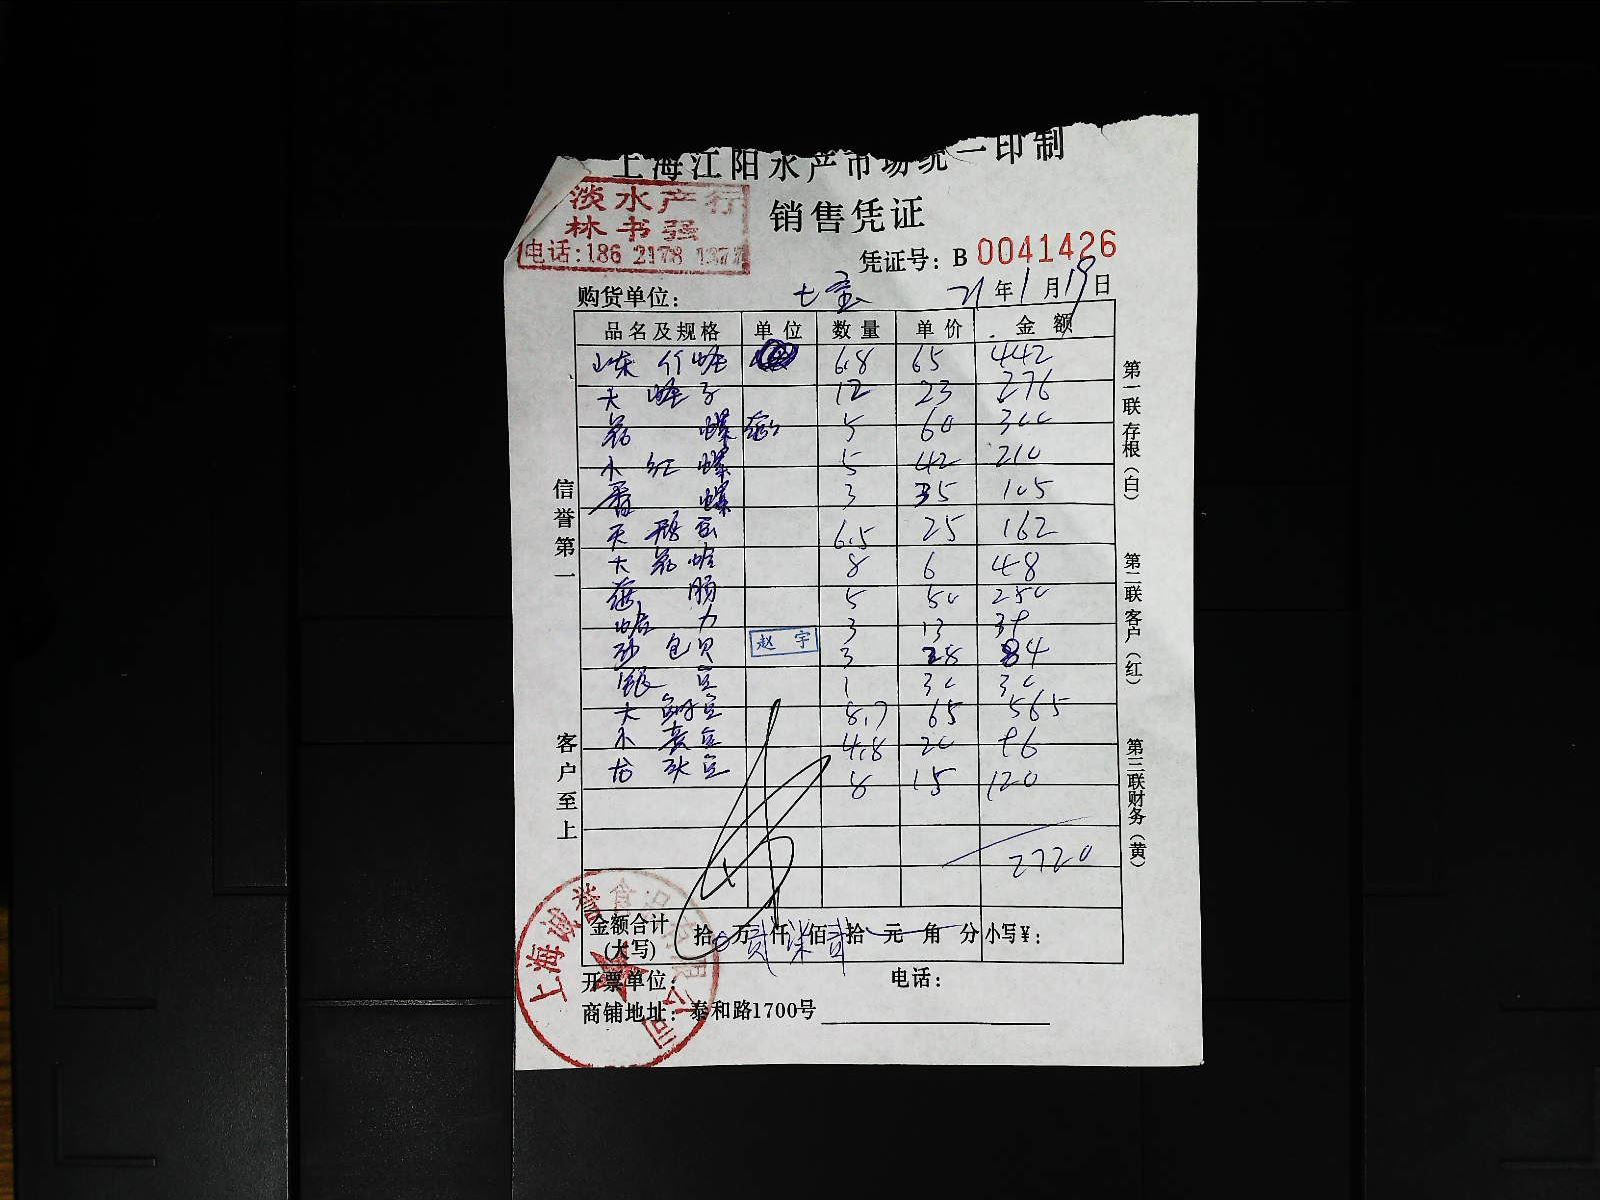 上海江阳水产市场统一印制
淡水产行
林书强
电话:186 2178 1377
销售凭证
凭证号: B 0041426
购货单位: 七宝 21年1月19日
品名及规格 单位 数量 单价 金额
山东竹蛏 6.8 65 442
大蛏子 12 23 276
螺 5 60 300
小红螺 5 42 210
香螺 3 35 105
天鹅蛋 6.5 25 162
大 蛤 8 6 48
肠 5 50 250
3 13 39
包贝 3 28 84
银 1 30 30
大 8.7 65 565
小 4.8 20 96
龙头 8 15 120
赵宇
2720
金额合计
(大写) 拾 万贰仟柒佰贰拾 元 角 分 小写¥:
开票单位: 电话:
商铺地址: 泰和路1700号
信誉第一
客户至上
第一联存根(白)
第二联客户(红)
第三联财务(黄)
上海诚誉食品有限公司